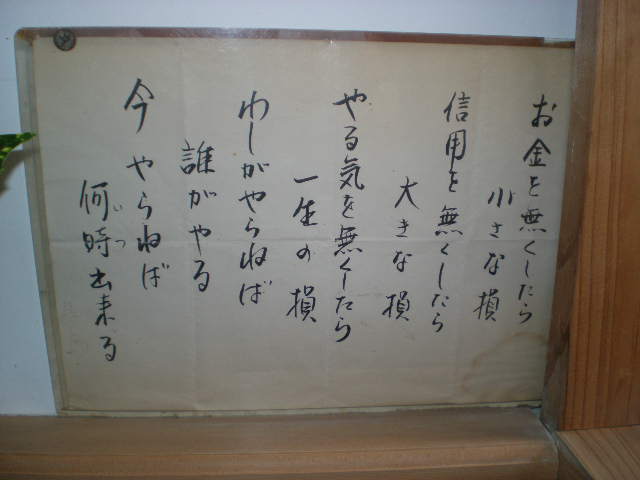 お金を無くしたら
小さな損
信用を無くしたら
大きな損
やる気を無くしたら
一生の損
わしがやらねば
誰がやる
今やらねば
何時出来る
いつ